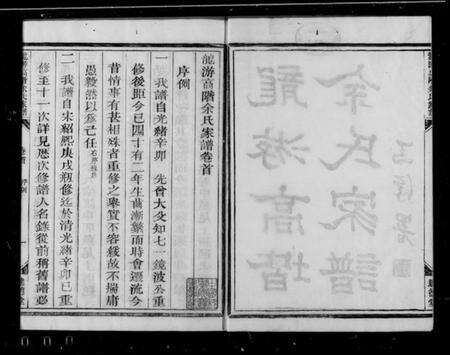 余氏家譜
龍游高階
龍游高階余氏家譜卷首
序例
一我譜自光緒辛卯 先曾大父知七一鏡波公重
修後距今已四十有二年生齒漸繁而時會遷流今
昔情事有甚相殊者重修之舉實不容緩故不揣庸
愚毅然以爲己任
二我譜自宋紹熙庚戌剏修迄於清光緒辛卯已重
修至十一次詳見歷次修譜人名錄從前稱舊譜必